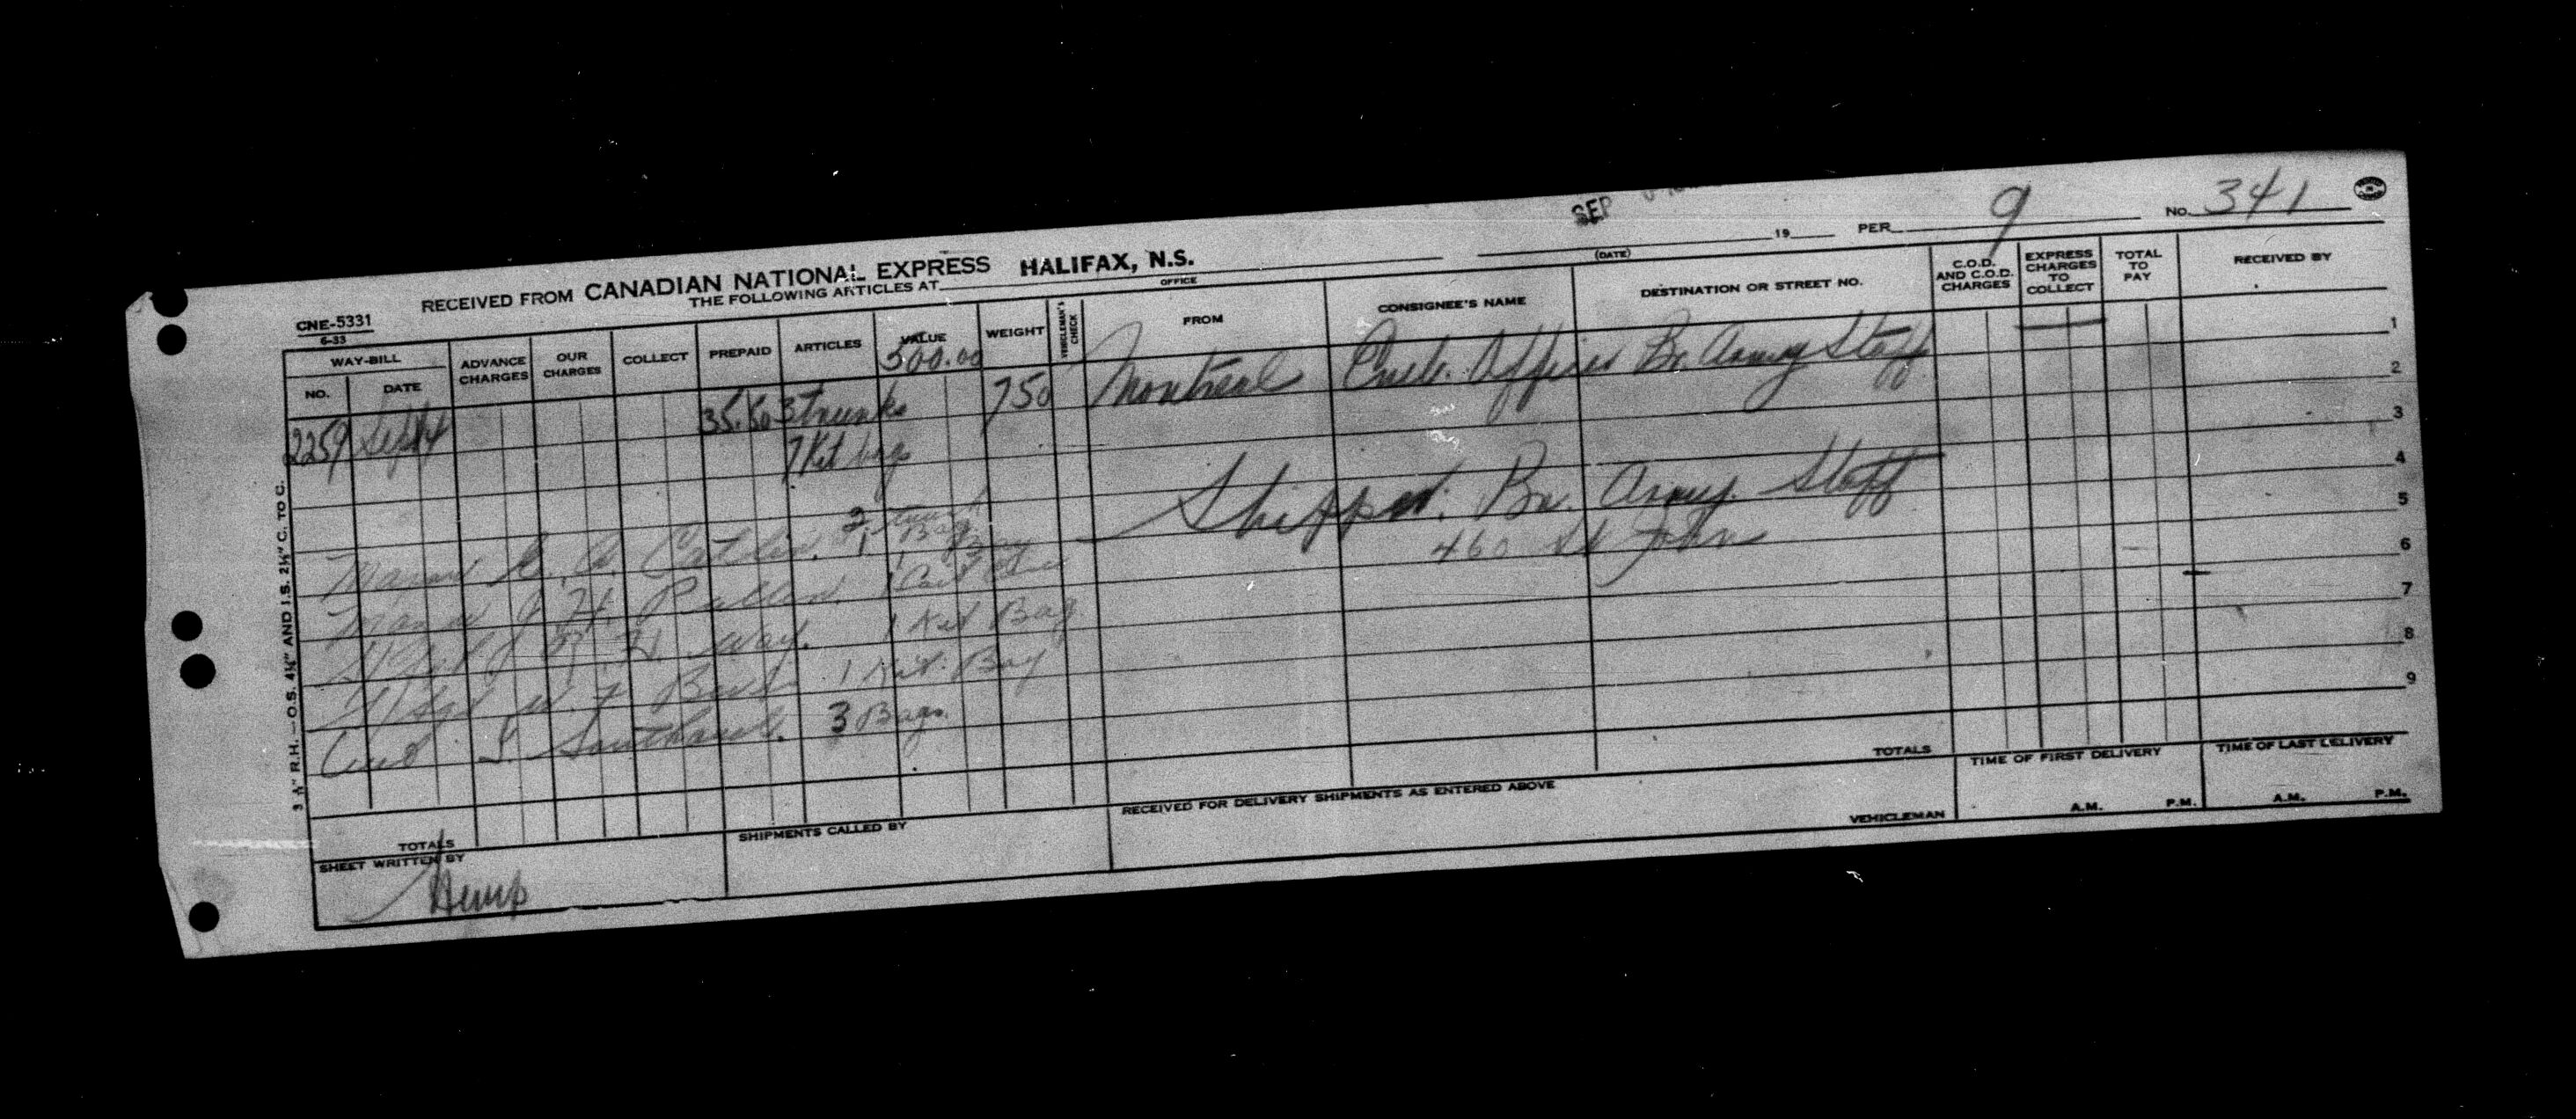 SEP
19 PER 9 No. 341
(DATE)
RECEIVED FROM CANADIAN NATIONAL EXPRESS HALIFAX, N.S.
THE FOLLOWING ARTICLES AT
OFFICE
CNE-5331
6-33
WAY-BILL
NO. DATE ADVANCE CHARGES OUR CHARGES COLLECT PREPAID ARTICLES VALUE WEIGHT VEHICLEMAN'S CHECK FROM CONSIGNEE'S NAME DESTINATION OR STREET NO. C.O.D. AND C.O.D. CHARGES EXPRESS CHARGES TO COLLECT TOTAL TO PAY RECEIVED BY
500.00
2259 Sept 4 35.50 3 trunks 750 Montreal Emb. Officer Br. Army Staff
7 Kit bags
Shipper: Br. Army Staff
460 St John
Major E. A. Catlin. 2 trunk
1 Bag
Major J. H. Pullen. 1 Bag
1
J R. H. Way. 1 Kit Bag
W. F 1 Kit Bag
S. 3 Bags.
1
2
3
4
5
6
7
8
9
3 R.H.—O.S. 4¼" AND I.S. 2½" C. TO C.
TOTALS
TOTALS
SHEET WRITTEN BY
Hemp
SHIPMENTS CALLED BY
RECEIVED FOR DELIVERY SHIPMENTS AS ENTERED ABOVE
VEHICLEMAN
TIME OF FIRST DELIVERY
A.M. P.M.
TIME OF LAST DELIVERY
A.M. P.M.